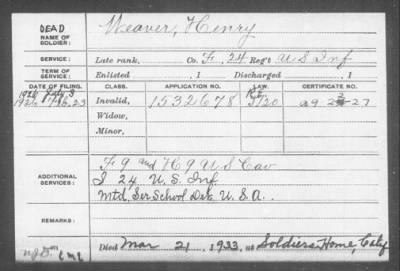 DEAD
NAME OF SOLDIER: Weaver, Henry
SERVICE: Late rank, Co. F, 24 Reg't U S Inf
TERM OF SERVICE: Enlisted , 1 Discharged , 1
DATE OF FILING. CLASS. APPLICATION NO. LAW. CERTIFICATE NO.
Invalid, 1532678
Widow,
Minor,
ADDITIONAL SERVICES: F 9 and H 9 U S Cav
I 24 U. S. Inf.
Mtd. Ser School Det. U.S.A.
REMARKS:
Died Mar 21, 1933, at Soldiers Home, Calif